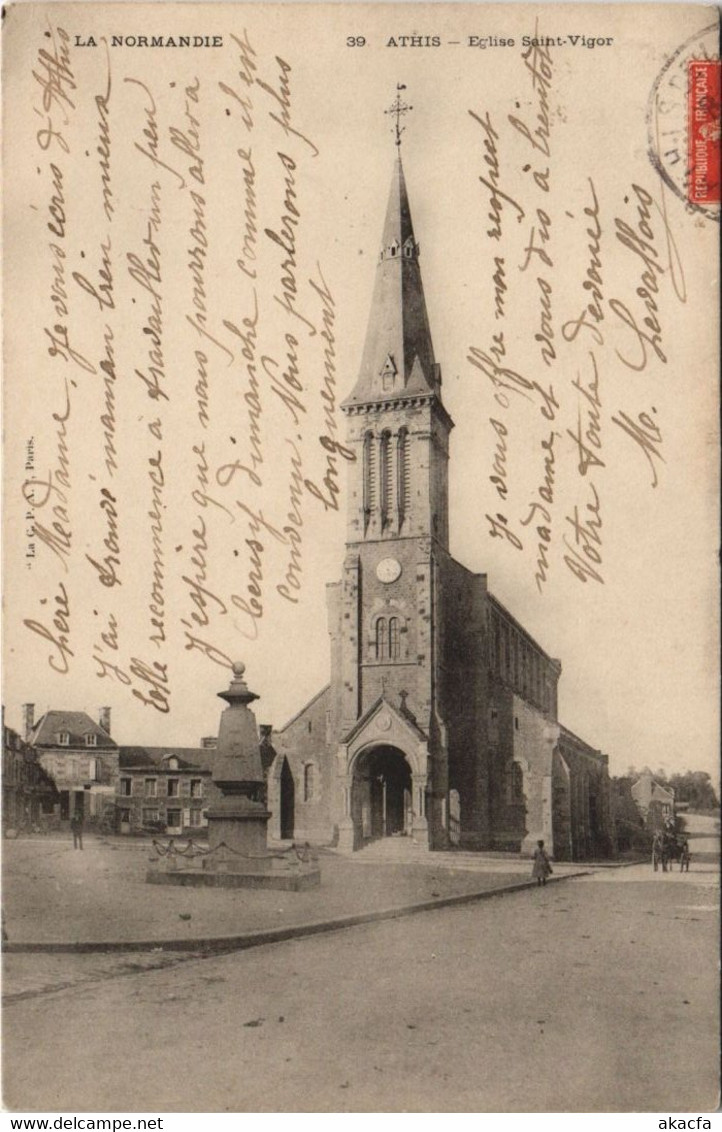 LA NORMANDIE
39 ATHIS — Eglise Saint-Vigor
REPUBLIQUE FRANÇAISE
"La C. P. A., Paris.
Chère Madame, Je vous écris d'Athis
J'ai trouvé maman bien mieux
Elle recommence à travailler un peu
J'espère que nous pourrons aller à
Cerisy dimanche comme il est
convenu. Nous parlerons plus
longuement
Je vous offre mon respect
madame, et vous dis à bientôt
Votre toute dévouée
M. Levallois
akacfa
www.delcampe.net